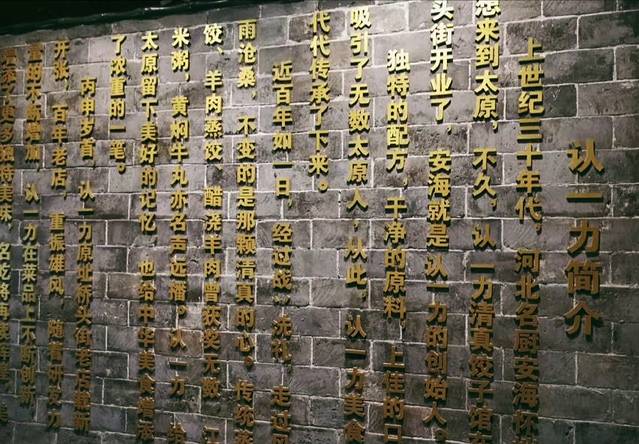 认一力简介
上世纪三十年代，河北名厨安海怀
想来到太原，不久，认一力清真饺子馆
头街开业了，安海就是认一力的创始人。
独特的配方，干净的原料，上佳的口
吸引了无数太原人，从此，认一力美食
代代传承了下来。
近百年如一日，经过战 洗礼，走过
雨沧桑，不变的是那颗清真的心。传统
饺、羊肉蒸饺、醋浇羊肉曾获奖无数，江
米粥，黄焖牛丸亦名声远播。认一力
太原留下美好的记忆，也给中华美食
了浓重的一笔。
丙申岁首，认一力原址桥头街老店
开张，百年老店，重振雄风，随着
量的不断增加，认一力在菜品上不断创新
更多独特美味，名 将再